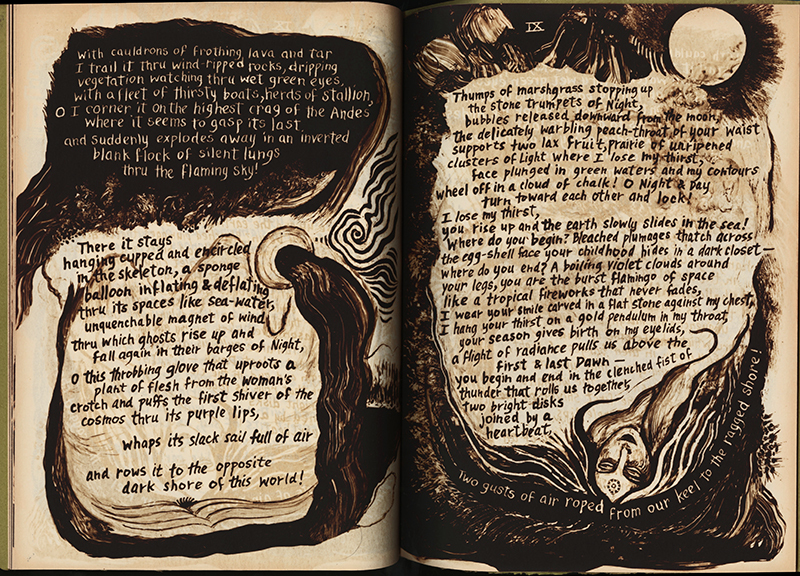 with cauldrons of frothing lava and tar
I trail it thru wind-ripped rocks, dripping
vegetation watching thru wet green eyes,
with a fleet of thirsty boats, herds of stallion,
O I corner it on the highest crag of the Andes
where it seems to gasp its last
and suddenly explodes away in an inverted
blank flock of silent lungs
thru the flaming sky!
There it stays
hanging cupped and encircled
in the skeleton, a sponge
balloon inflating & deflating
thru its spaces like sea-water,
unquenchable magnet of wind
thru which ghosts rise up and
fall again in their barges of Night,
O this throbbing glove that uproots a
plant of flesh from the woman's
crotch and puffs the first shiver of the
cosmos thru its purple lips,
whaps its slack sail full of air
and rows it to the opposite
dark shore of this world!
IX
Thumps of marshgrass stopping up
the stone trumpets of Night,
bubbles released downward from the moon,
the delicately warbling peach-throat of your waist
supports two lax fruit, prairie of unripened
clusters of Light where I lose my thirst,
face plunged in green waters and my contours
wheel off in a cloud of chalk! O Night & Day
turn toward each other and lock!
I lose my thirst,
you rise up and the earth slowly slides in the sea!
Where do you begin? Bleached plumages thatch across
the egg-shell face your childhood hides in a dark closet—
where do you end? A boiling violet clouds around
your legs, you are the burst flamingo of space
like a tropical fireworks that never fades,
I wear your smile carved in a flat stone against my chest,
I hang your thirst on a gold pendulum in my throat,
your season gives birth on my eyelids,
a flight of radiance pulls us above the
first & last Dawn —
you begin and end in the clenched fist of
thunder that rolls us together,
two bright disks
joined by a
heartbeat,
Two gusts of air roped from our keel to the ragged shore!